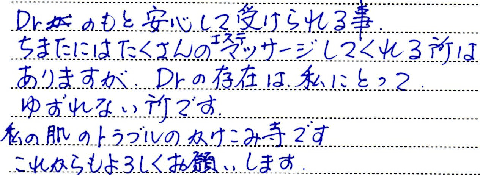 Drのもと安心して受けられる事
ちまたにはたくさんのエステマッサージしてくれる所は
ありますが、Drの存在は私にとって
ゆずれない所です
私の肌のトラブルのかけこみ寺です
これからもよろしくお願いします.